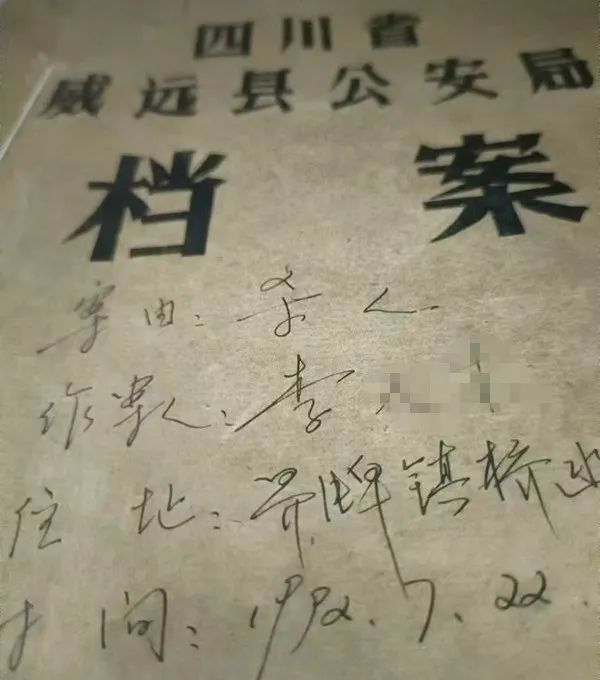 四川省
威远县公安局
档案
案由：杀人
作案人：李
住址：界牌镇桥
时间：1992.7.22.